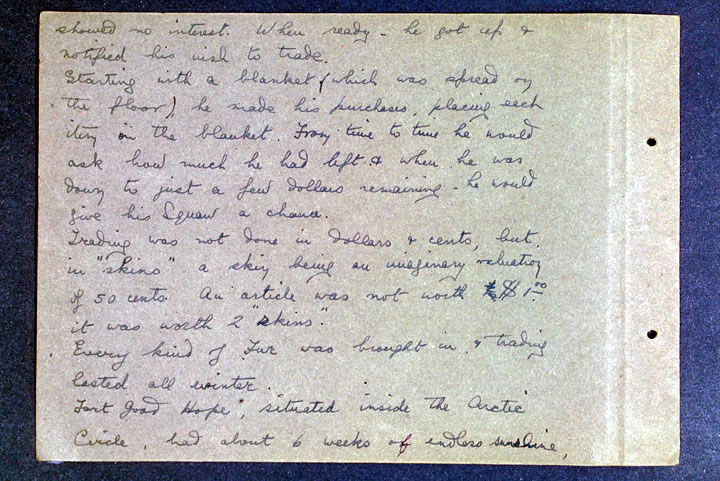 showed no interest. When ready - he got up &
notified his wish to trade.
Starting with a blanket (which was spread on
the floor), he made his purchases, placing each
item on the blanket. From time to time he would
ask how much he had left & when he was
down to just a few dollars remaining - he would
give his Squaw a chance.
Trading was not done in dollars & cents, but
in "skins" a skin being an imaginary valuation
of 50 cents. An article was not worth $1.00
it was worth 2 "skins".
Every kind of Fur was brought in & trading
lasted all winter.
Fort Good Hope, situated inside the Arctic
Circle, had about 6 weeks of endless sunshine,